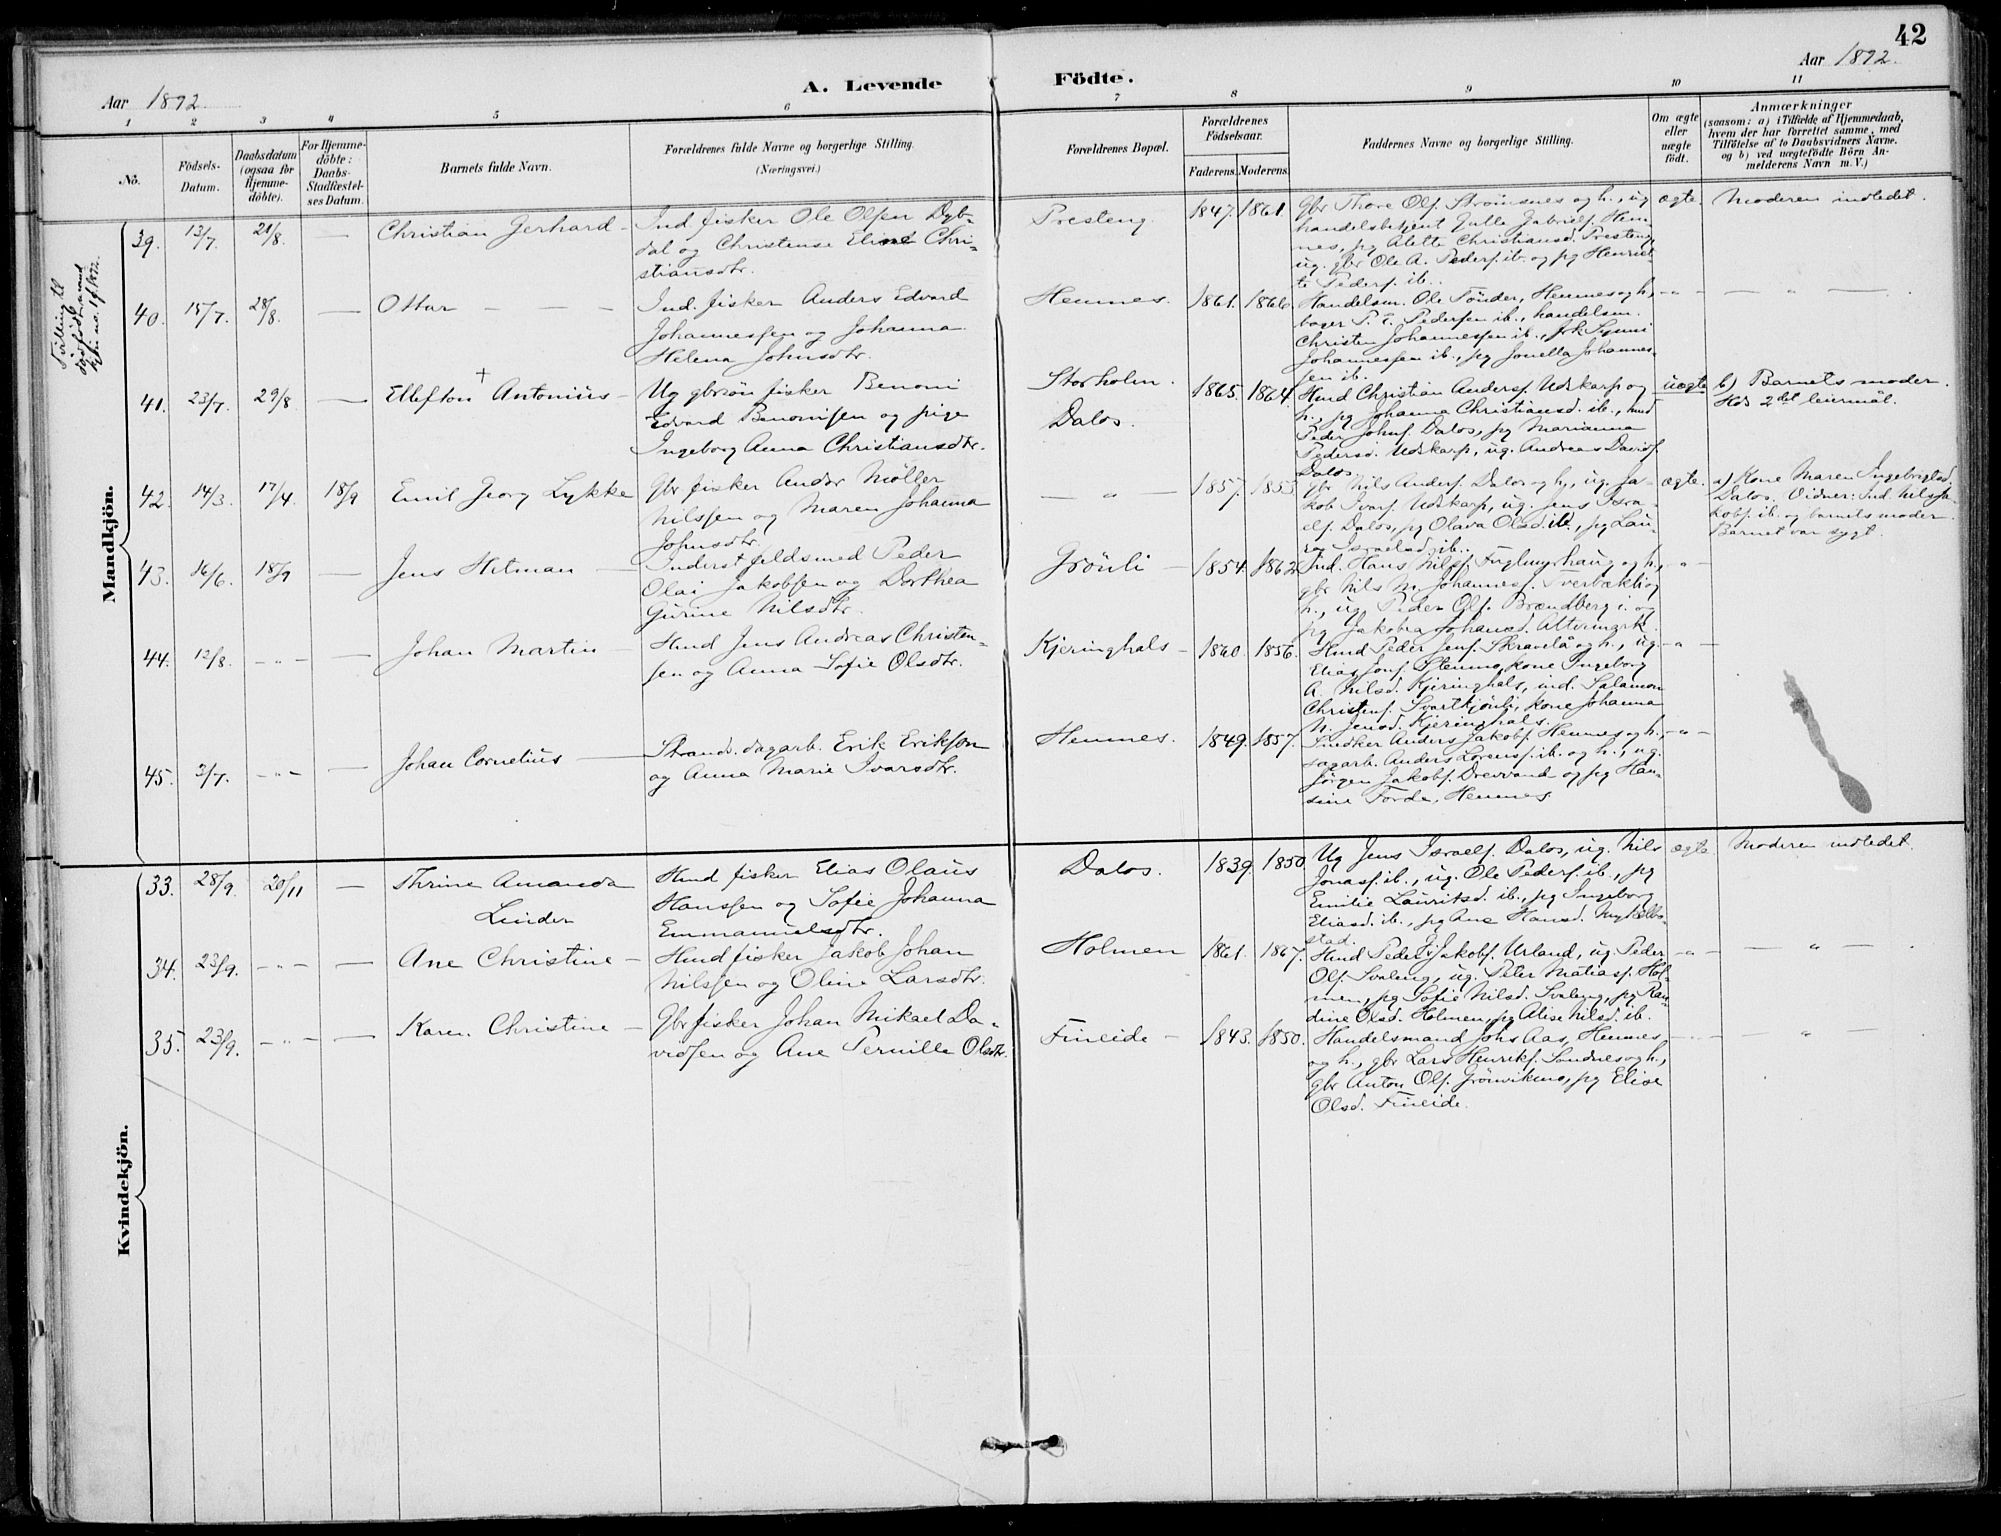 42
Aar 1892.
A. Levende Födte.
Aar 1892.
1 2 3 4 5 6 7 8 9 10 11
No.
Födsels-
Datum.
Daabsdatum
(ogsaa for
Hjemme-
döbte).
For Hjemme-
döbte:
Daabs-
Stadfæstel-
ses Datum.
Barnets fulde Navn.
Forældrenes fulde Navne og borgerlige Stilling.
(Næringsvei.)
Forældrenes Bopæl.
Forældrenes
Födselsaar.
Faderens. Moderens.
Faddernes Navne og borgerlige Stilling.
Om ægte
eller
uægte
födt.
Anmærkninger
(saasom: a) i Tilfælde af Hjemmedaab,
hvem der har forrettet samme, med
Tilföielse af to Daabsvidners Navne.
og b) ved uægtefödte Börn An-
melderens Navn m. V.)
Mandkjön.
39. 13/7. 21/8. — Christian Gerhard —
Ind. fisker Ole Olsen Dyb-
dal og Christense Eline Chri-
stiansdtr.
Presteng. 1847. 1861.
Gbr Thore Olf. Strömsnes og h., ug
handelsbetjent Julle Gabrielf. Hem-
nes, pg Alette Christiansd. Presteng,
ug. gbr Ole A. Pederf. ib. og pg Henriet-
te Pederf. ib.
ægte. Moderen indledet.
40. 15/7. 28/8. — Ottar — — —
Ind. fisker Anders Edvard
Johannessen og Johanna
Helena Johnsdtr.
Hemnes. 1861. 1866.
Handelsm. Ole Tönder, Hemnes og h.,
bager P. E. Pedersen ib., handelsm.
Christen Johannessen ib.,
Johannessen ib., pg Jonetta Johannes-
sen ib.
—"— — " — .
41. 23/7. 29/8 — Ellefton + Antonius —
Ug gbrsön fisker Benoni
Edvard Benonisen og pige
Ingeborg Anna Christiansdtr.
Storholm.
Dalos.
1865. 1864.
Hmd Christian Andersf. Udskarp og
h., pg Johanna Christiansd. ib., hmd
Peder Johnf. Dalos, pg Marianna
Pedersd. Udskarp, ug. Andreas Davidf.
Dalos.
uægte b) Barnets moder.
Hds 2det leiermål.
42. 14/3. 17/4. 18/9 Emil Georg Lykke
Gbr fisker Andor Möller
Nilssen og Maren Johanna
Johnsdtr.
— " — 1857. 1853
gbr Nils Andersf. Dalos og h., ug. Ja-
kob Ivarf. Udskarp, ug. Jens Isra-
elf. Dalos, pg Olava Olsd. ib., pg Lau-
ra Israelsd. ib.
ægte. a) Kone Maren Ingebrigtsd.
Dalos. Vidner: Ind. Nils Ja-
kobf. ib. og barnets moder.
Barnet var sygt.
43. 16/6. 18/9 — Jens Hitman —
Inderst feldsmed Peder
Olai Jakobsen og Dorthea
Gurine Nilsdtr.
Grönli — 1854. 1862.
Ind. Hans Nilsf. Fuglmyrhaug og h.,
gbr Nils M. Johannesf. Tverbækli og
h., ug. Peder Olf. Brændberg i. og
pg Jakobea Johansd. Altermark.
—"—
44. 12/8. —"— — Johan Martin —
Hmd Jens Andreas Christen-
sen og Anna Sofie Olsdtr.
Kjeringhals — 1860. 1856.
Hmd Peder Jenf. Skravlå og h., ug.
Elias Jonf. Stenmo, kone Ingeborg
A. Nilsd. Kjeringhals, ind. Salamon
Christenf. Svarttjönli, kone Johanna
N. Jensd. Kjeringhals.
—"—
45. 3/7. —"— — Johan Cornelius —
Strands. dagarb. Erik Erikson
og Anna Marie Ivarsdtr.
Hemnes. 1849. 1857.
Snedker Anders Jakobf. Hemnes og h.,
dagarb. Anders Lorensf. ib. og h., ug.
Jörgen Jakobf. Drevvand og pg Han-
sine Forde, Hemnes.
—"—
Kvindekjön.
33. 28/9. 20/11 — Thrine Amanda
Linder
Hmd fisker Elias Olaus
Hanssen og Sofie Johanna
Emmanuelsdtr.
Dalos. 1839. 1850.
Ug Jens Israelf. Dalos, ug. Nils
Jonasf. ib., ug. Ole Pederf. ib., pg
Emilie Lauritsd. ib., pg Ingeborg
Eliasd. ib., pg Ane Hansd.
stad.
ægte Moderen indledet.
34. 23/9. —"— — Ane Christine —
Hmd fisker Jakob Johan
Nilssen og Oline Larsdtr.
Holmen 1861. 1867.
Hmd Peder Jakobf. Urland, ug. Peder
Olf. Svaleng, ug. Peter Matiasf. Hol-
men, pg Sofie Nilsd. Svaleng, pg Ran-
dine Olsd. Holmen, pg Alise Nilsd. ib.
—"— — " — .
35. 23/9. —"— — Karen Christine —
Gbr fisker Johan Mikael Da-
vidsen og Ane Pernille Olsdtr.
Fineide — 1843. 1850.
Handelsmand Johs Aas, Hemnes
og h., gbr Lars Henrikf. Sandnes og h.,
gbr Anton Olf. Grönvikmo, pg Elise
Olsd. Fineide.
—"— — " — .